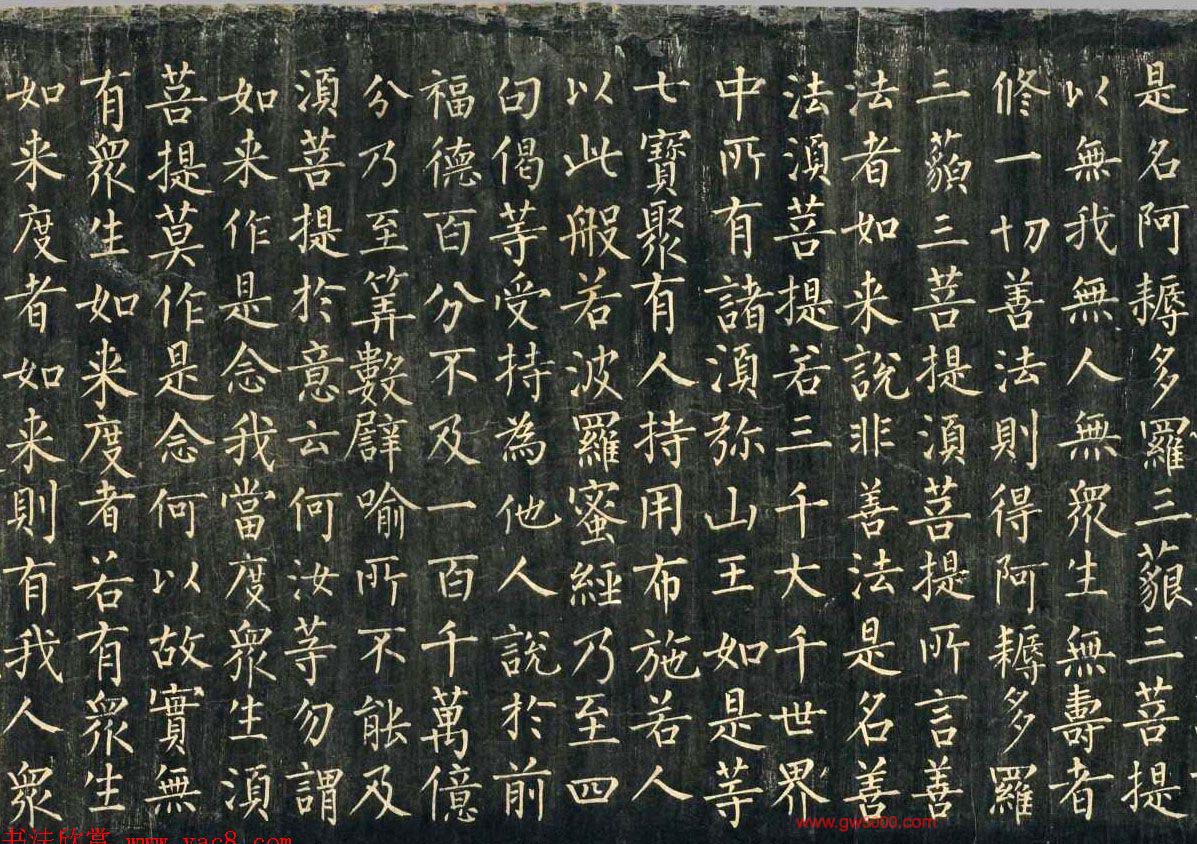 是名阿耨多羅三藐三菩提
以無我無人無眾生無壽者
修一切善法則得阿耨多羅
三藐三菩提須菩提所言善
法者如来說非善法是名善
法須菩提若三千大千世界
中所有諸須弥山王如是等
七寶聚有人持用布施若人
以此般若波羅蜜經乃至四
句偈等受持為他人說於前
福德百分不及一百千萬億
分乃至筭數譬喻所不能及
須菩提於意云何汝等勿謂
如来作是念我當度眾生須
菩提莫作是念何以故實無
有眾生如来度者若有眾生
如来度者如来則有我人眾
书法欣赏 www.yac8.com